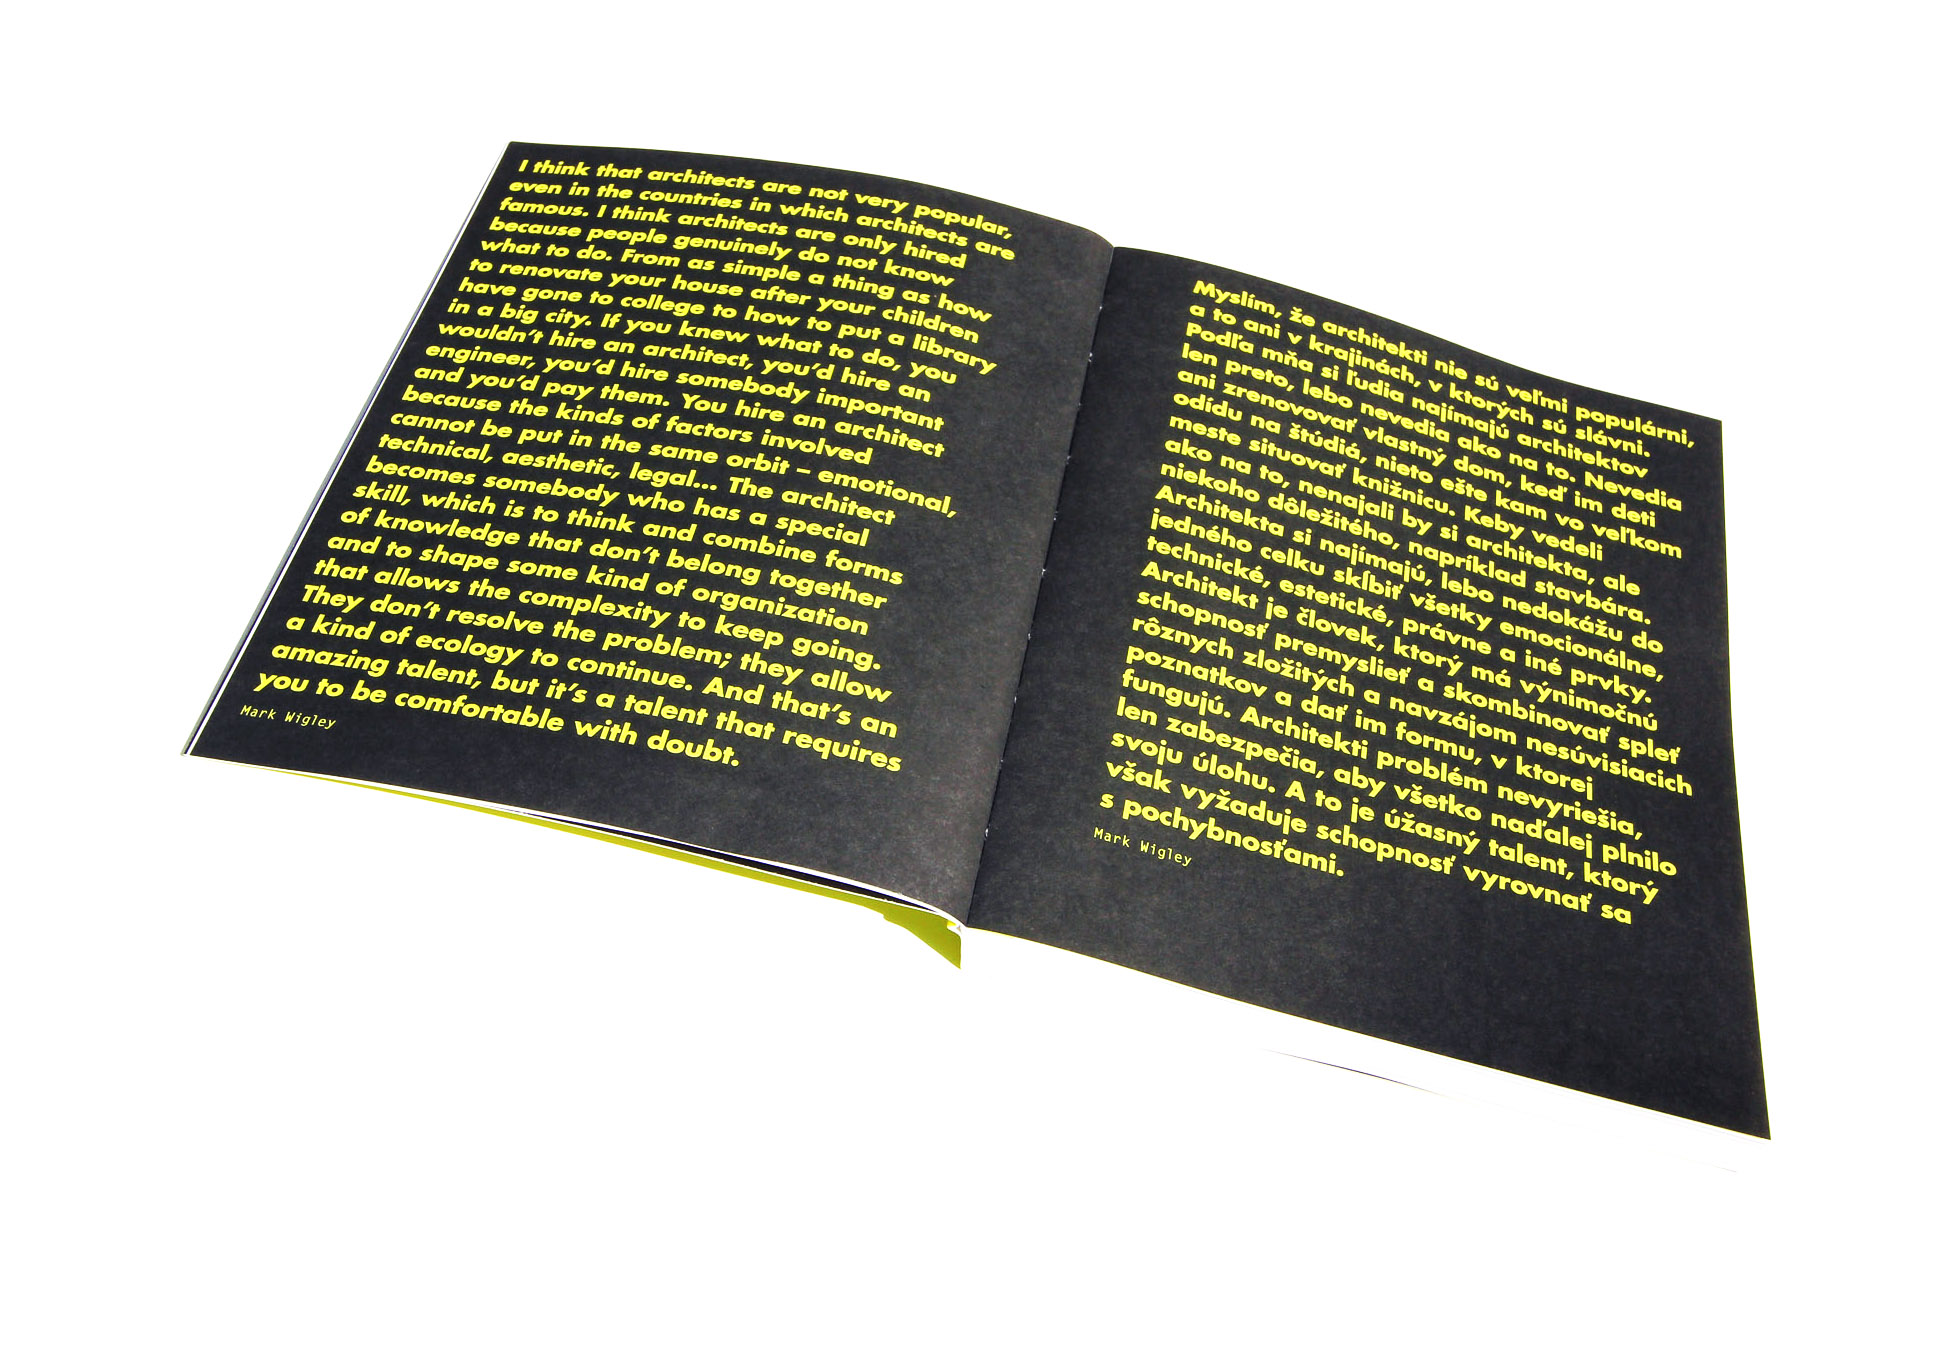 I think that architects are not very popular,
even in the countries in which architects are
famous. I think architects are only hired
because people genuinely do not know
what to do. From as simple a thing as how
to renovate your house after your children
have gone to college to how to put a library
in a big city. If you knew what to do, you
wouldn't hire an architect, you'd hire an
engineer, you'd hire somebody important
and you'd pay them. You hire an architect
because the kinds of factors involved
cannot be put in the same orbit – emotional,
technical, aesthetic, legal... The architect
becomes somebody who has a special
skill, which is to think and combine forms
of knowledge that don't belong together
and to shape some kind of organization
that allows the complexity to keep going.
They don't resolve the problem; they allow
a kind of ecology to continue. And that's an
amazing talent, but it's a talent that requires
you to be comfortable with doubt.
Mark Wigley
Myslím, že architekti nie sú veľmi populárni,
a to ani v krajinách, v ktorých sú slávni.
Podľa mňa si ľudia najímajú architektov
len preto, lebo nevedia ako na to. Nevedia
ani zrenovovať vlastný dom, keď im deti
odídu na štúdiá, nieto ešte kam vo veľkom
meste situovať knižnicu. Keby vedeli
ako na to, nenajali by si architekta, ale
niekoho dôležitého, napríklad stavbára.
Architekta si najímajú, lebo nedokážu do
jedného celku skĺbiť všetky emocionálne,
technické, estetické, právne a iné prvky.
Architekt je človek, ktorý má výnimočnú
schopnosť premyslieť a skombinovať spleť
rôznych zložitých a navzájom nesúvisiacich
poznatkov a dať im formu, v ktorej
fungujú. Architekti problém nevyriešia,
len zabezpečia, aby všetko naďalej plnilo
svoju úlohu. A to je úžasný talent, ktorý
však vyžaduje schopnosť vyrovnať sa
s pochybnosťami.
Mark Wigley